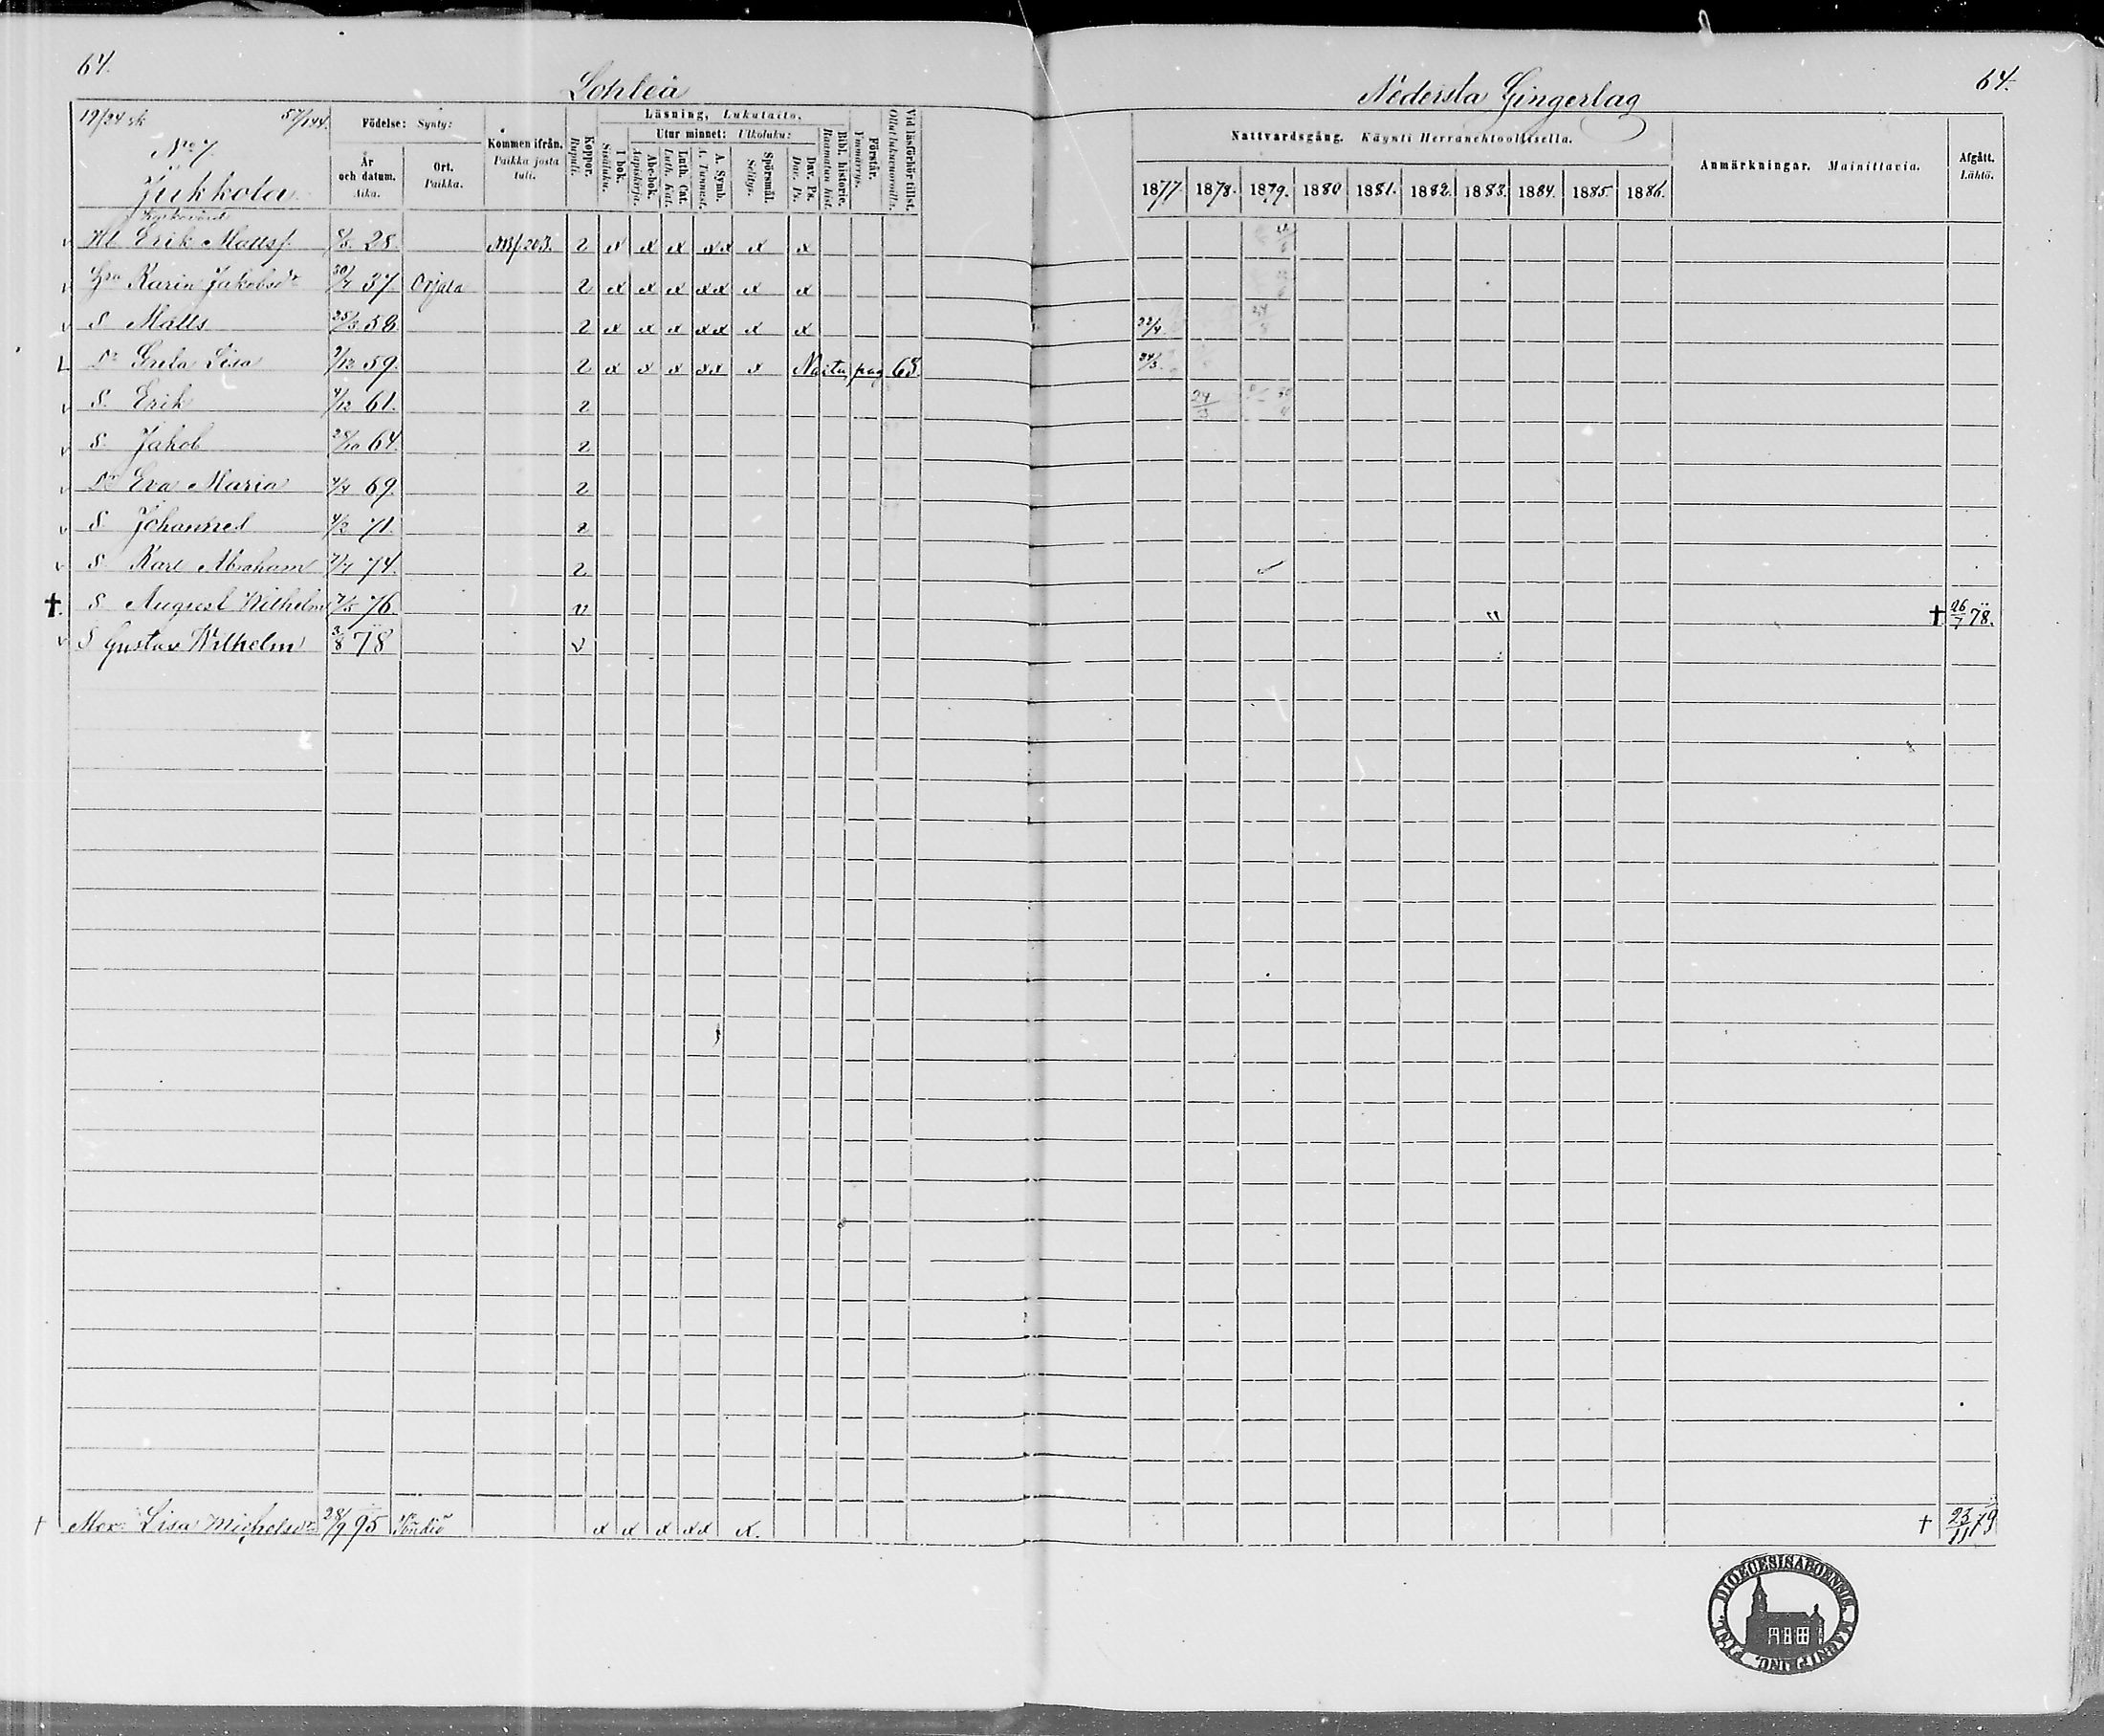 64.
Lohteå
Nedersta Gingerlag
64.
19/24 sk 57/144.
Nro 7.
Jukkola
Födelse: Synty:
År och datum. Aika.
Ort. Paikka.
Kommen ifrån. Paikka josta tuli.
Koppor. Rupuli.
Läsning, Lukutaito.
I bok. Sisäluku.
Utur minnet: Ulkoluku:
Abc-bok. Aapiskirja.
Luth. Cat. Luth. Kat.
A. Symb. A. Tunnust.
Spörsmål. Selitys.
Dav. Ps. Dav. Ps.
Bibl. historie. Raamatun hist.
Förstår. Ymmärrys.
Vid läsförhör tillst. Ollut lukuvuorolla.
Nattvardsgång. Käynti Herranehtoollisella.
1877. 1878. 1879. 1880 1881. 1882. 1883. 1884. 1885. 1886.
Anmärkningar. Mainittavia.
Afgått. Lähtö.
Kyrkovärd
v Hb Erik Mattsf. 8/8. 28. 2 x x x xx x x
v Hu Karin Jakobsdr 30/7 37 Orjala 2 x x x xx x x
v S Matts 25/3 58 2 x x x xx x x 22/4.
L Dr Greta Lisa 9/12 59. 2 x x x xx x Noita pag 68. 24/3.
v S. Erik 7/12 61. 2 24/3
v S. Jakob 28/10 64. 2
v Dr Eva Maria 7/4 69. 2
v S Johannes 4/2 71. 2
v S Karl Abraham 7/7 74. 2
†. S August Wilhelm 7/5 76. v † 26/7 78.
v S Gustav Wilhelm 3/8 78 v
† Mor Lisa Michelsdr 28/9 95 x x x xx x. † 23/11 79
DIOECESIS ABOENSIS